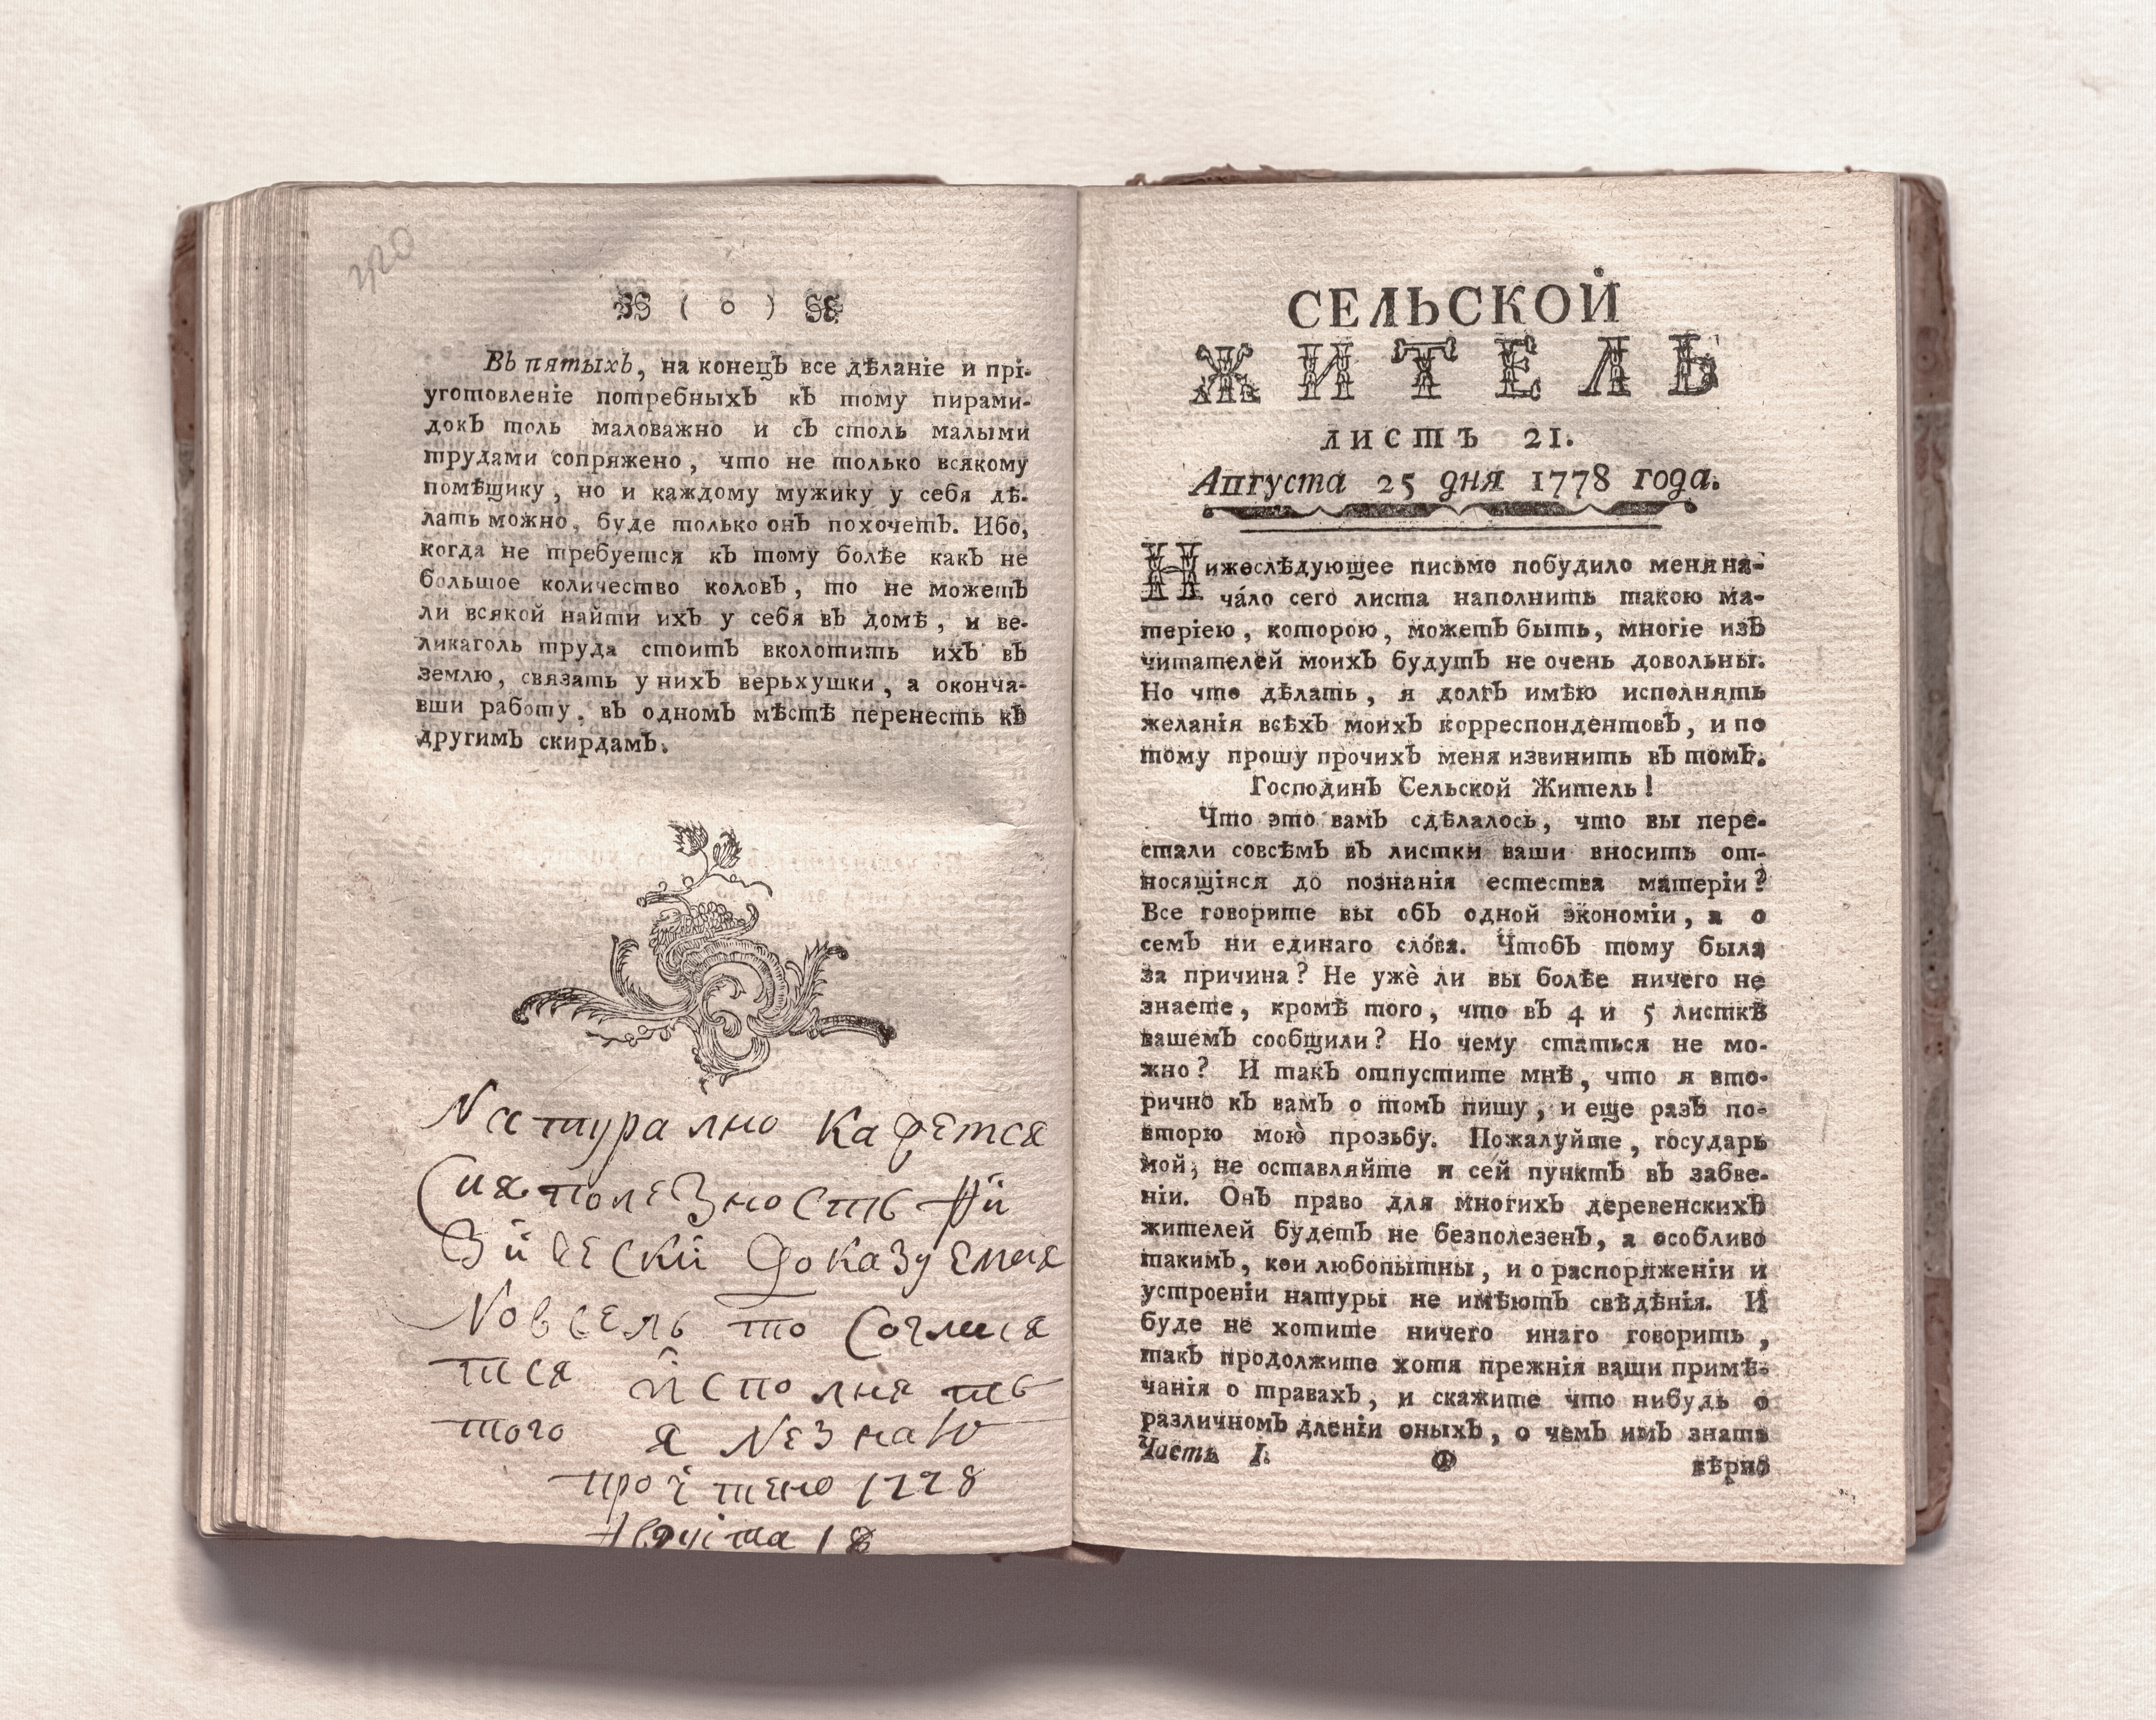 ( о )
Въ пятыхъ, на конецъ все дѣланіе и прі-
уготовленіе потребныхъ къ тому пирами-
докъ толь маловажно и съ столь малыми
трудами сопряжено, что не только всякому
помѣщику, но и каждому мужику у себя дѣ-
лать можно, буде только онъ похочетъ. Ибо,
когда не требуется къ тому болѣе какъ не
большое количество коловъ, то не можетъ
ли всякой найти ихъ у себя въ домѣ, и ве-
ликаголь труда стоитъ вколотить ихъ въ
землю, связать у нихъ верьхушки, а оконча-
вши работу, въ одномъ мѣстѣ перенесть къ
другимъ скирдамъ.
Натурално кажется
сия полезность фи
зически доказуемая
Новсель то согласи
тся исполнять
того я незнаю
прочтено 1778
августа 18
СЕЛЬСКОЙ
ЖИТЕЛЬ
листъ 21.
Августа 25 дня 1778 года.
Нижеслѣдующее письмо побудило меня на-
ча́ло сего листа наполнить такою ма-
теріею, которою, можетъ быть, многіе изъ
читателей моихъ будутъ не очень довольны.
Но что дѣлать, я долгъ имѣю исполнять
желанія всѣхъ моихъ корреспондентовъ, и по
тому прошу прочихъ меня извинить въ томъ.
Господинъ Сельской Житель!
Что это вамъ сдѣлалось, что вы пере-
стали совсѣмъ въ листки ваши вносить от-
носящіяся до познанія естества матеріи?
Все говорите вы объ одной экономіи, а о
семъ ни единаго сло́ва. Чтобъ тому была
за причина? Не ужѐ ли вы болѣе ничего не
знаете, кромѣ того, что въ 4 и 5 листкѣ
вашемъ сообщили? Но чему статься не мо-
жно? И такъ отпустите мнѣ, что я вто-
рично къ вамъ о томъ пишу, и еще разъ по-
вторю мою̀ прозьбу. Пожалуйте, государь
мой, не оставляйте и сей пунктъ въ забве-
ніи. Онъ право для многихъ деревенскихъ
жителей будетъ не безполезенъ, а особливо
такимъ, кои любопытны, и о распоряженіи и
устроеніи натуры не имѣютъ свѣдѣнія. И
буде не хотите ничего инаго говорить,
такъ продолжите хотя прежнія ваши примѣ-
чанія о травахъ, и скажите что нибудь о
различномъ дленіи оныхъ, о чемъ имъ знать
Часть I. Ф вѣрно